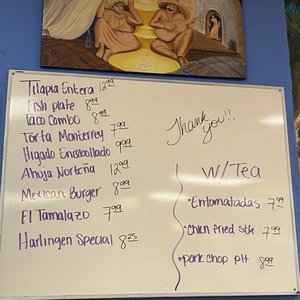 Tilapia Entera 12.99
Fish plate 8.99
Taco Combo 8.99
Torta Monterrey 7.99
Higado Encebollado 9.99
Ahoja Norteña 12.99
Mexican Burger 8.99
El Tamalazo 7.99
Harlingen Special 8.25
Thank you!!
W/Tea
• Entomatadas 7.99
• Chicn fried stk 7.99
• pork chop plt 8.99